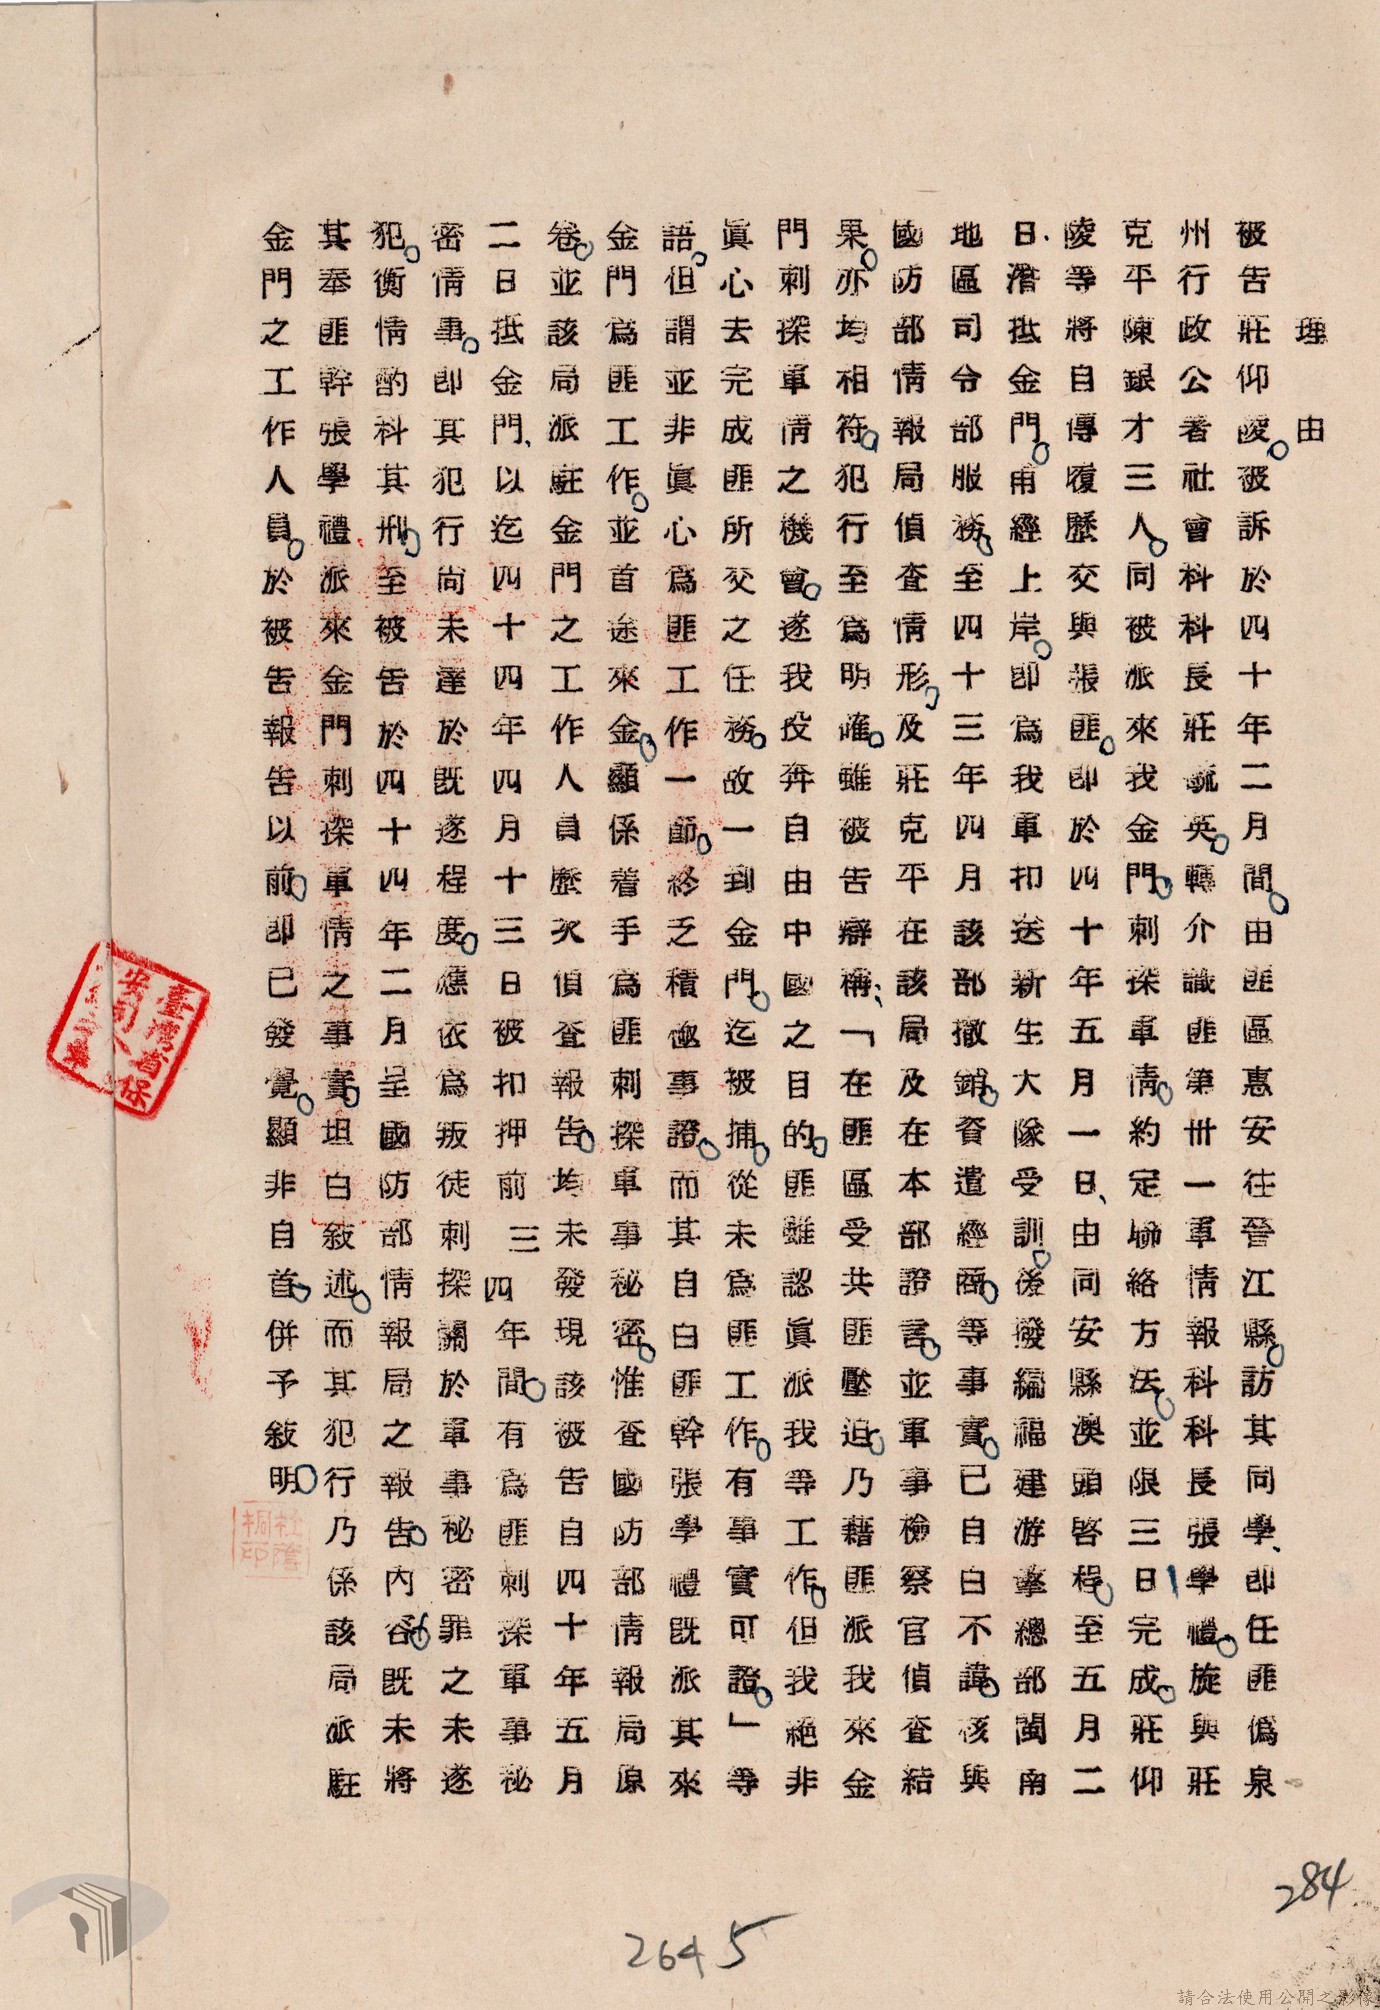 理由
被告莊仰陵。被訴於四十年二月間。由匪區惠安往晉江縣。訪其同學、即任匪僞泉
州行政公署社會科科長莊毓英。轉介識匪第卅一軍情報科科長張學禮。旋與莊
克平陳銀才三人。同被派來我金門。刺探軍情。約定聯絡方法。並限三日完成。莊仰
陵等將自傳履歷交與張匪。即於四十年五月一日、由同安縣澳頭啓程。至五月二
日、潛抵金門。甫經上岸。即爲我軍扣送新生大隊受訓。後發編福建游擊總部閩南
地區司令部服務。至四十三年四月該部撤銷。資遣經商。等事實。已自白不諱。核與
國防部情報局偵查情形。及莊克平在該局及在本部證言。並軍事檢察官偵查結
果。亦均相符。犯行至爲明確。雖被告辯稱、「在匪區受共匪壓迫。乃藉匪派我來金
門刺探軍情之機會。遂我投奔自由中國之目的。匪雖認眞派我等工作。但我絕非
眞心去完成匪所交之任務。故一到金門。迄被捕。從未爲匪工作。有事實可證。」等
語。但謂並非眞心爲匪工作一節。終乏積極事證。而其自白匪幹張學禮旣派其來
金門爲匪工作。並首途來金。顯係着手爲匪刺探軍事秘密。惟查國防部情報局原
卷。並該局派駐金門之工作人員歷次偵查報告。均未發現該被告自四十年五月
二日抵金門、以迄四十四年四月十三日被扣押前三四年間。有爲匪刺探軍事秘
密情事。卽其犯行尚未達於旣遂程度。應依爲叛徒刺探關於軍事秘密罪之未遂
犯。衡情酌科其刑。至被告於四十四年二月呈國防部情報局之報告。內容。旣未將
其奉匪幹張學禮派來金門刺探軍情之事實。坦白敍述。而其犯行乃係該局派駐
金門之工作人員。於被告報告以前。卽已發覺。顯非自首。併予敍明。
臺灣省保
安司令
284
2645
請合法使用公開之影像